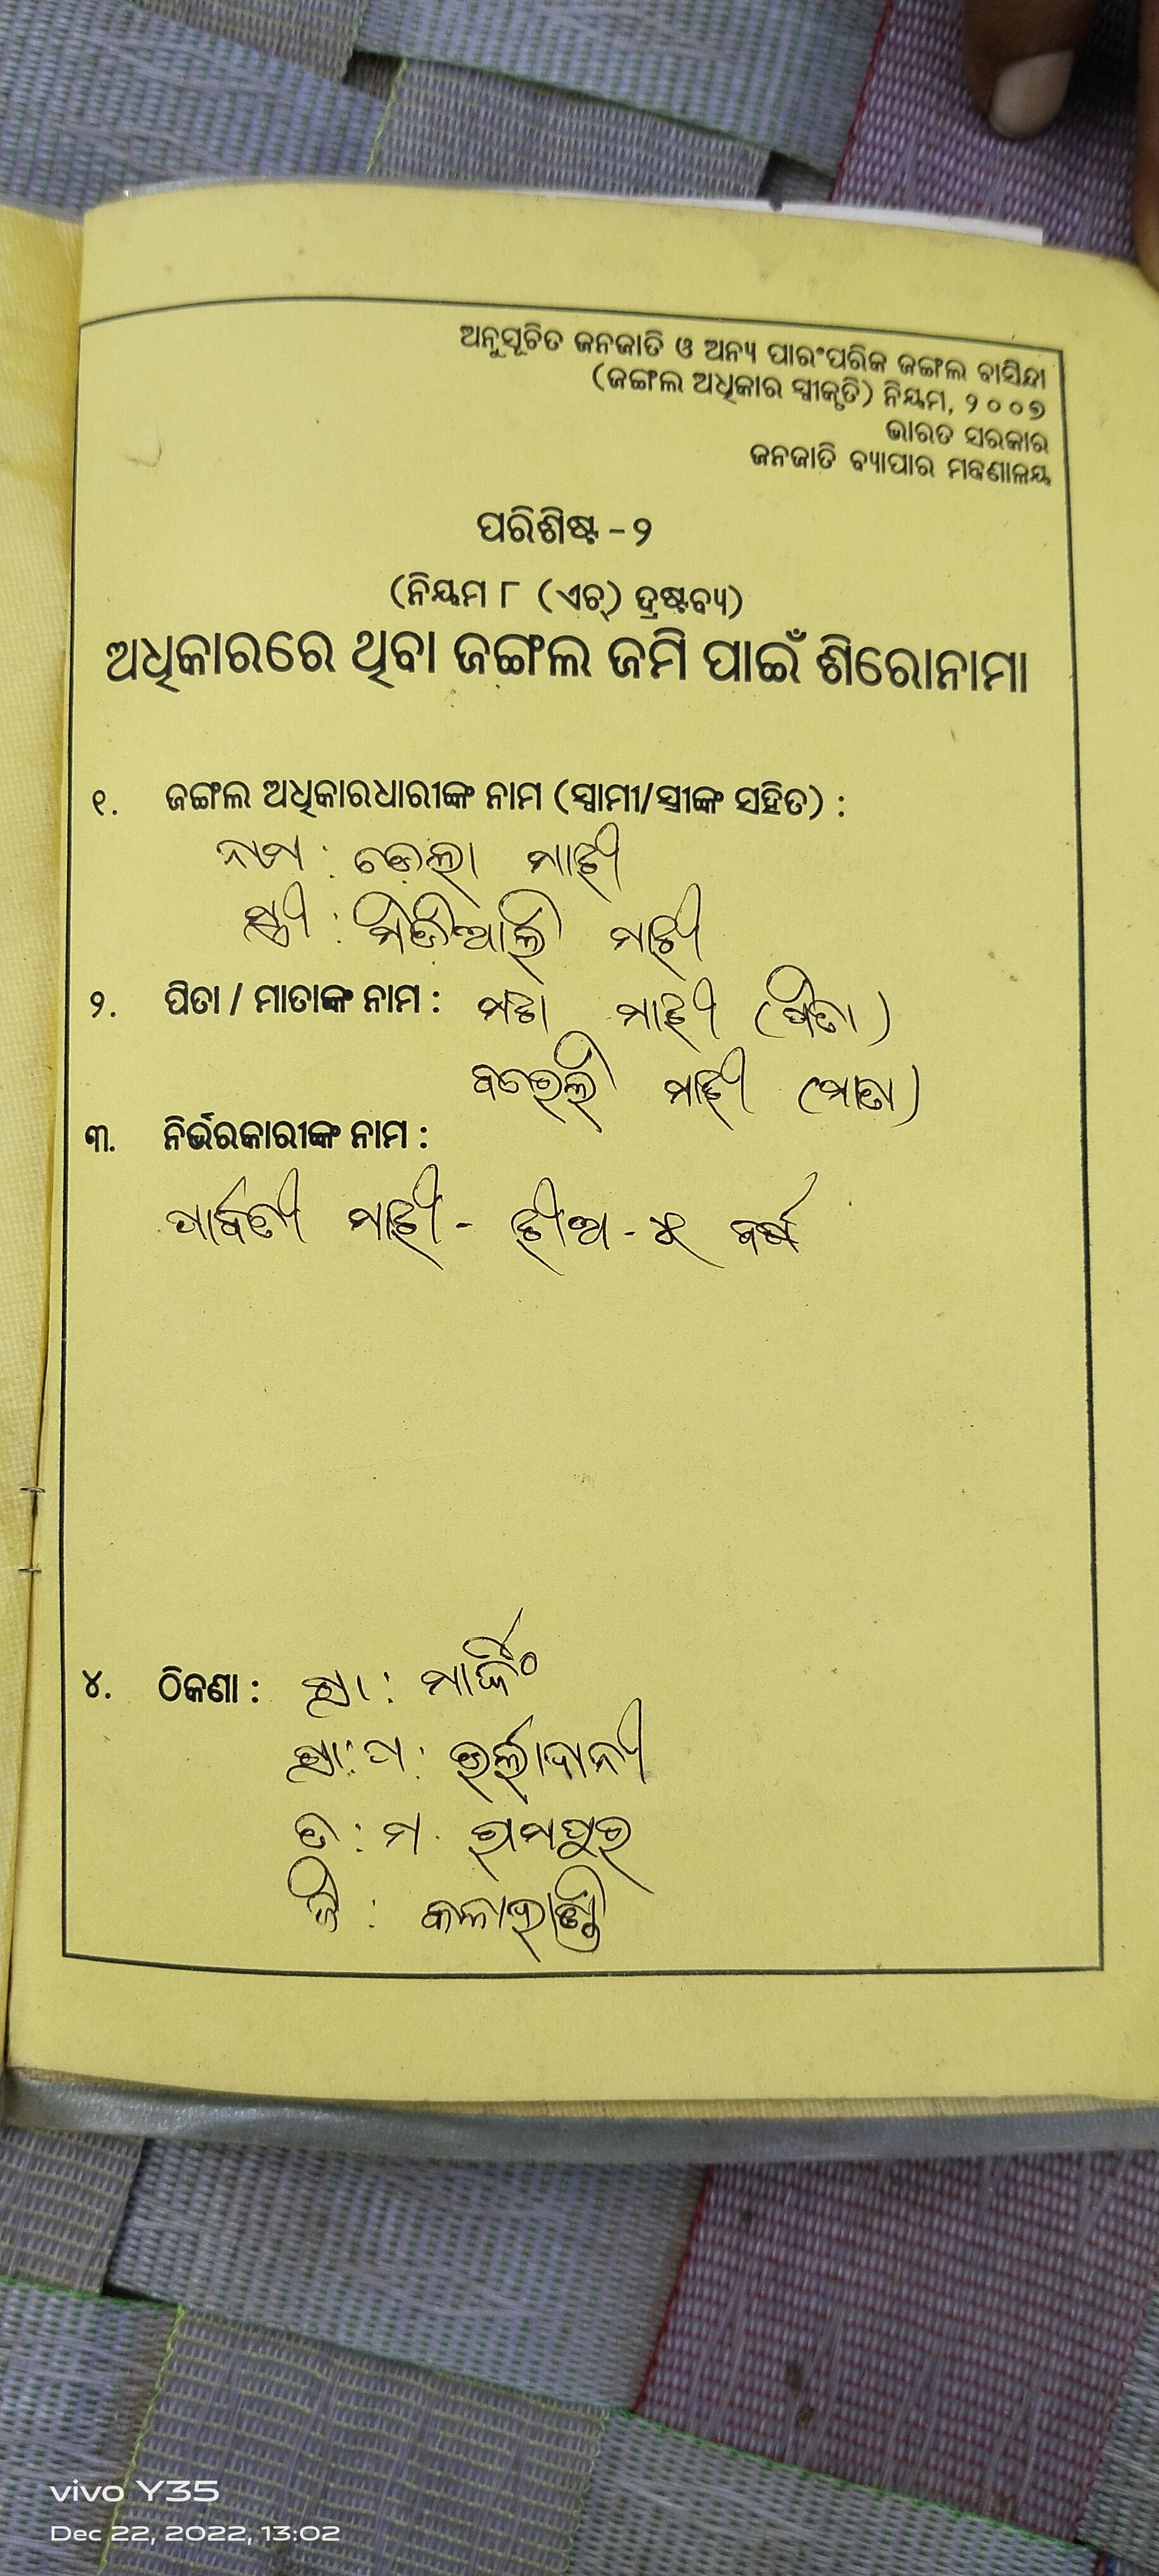 ଅନୁସୂଚିତ ଜନଜାତି ଓ ଅନ୍ୟ ପାରଂପରିକ ଜଙ୍ଗଲ ବାସିନ୍ଦା
(ଜଙ୍ଗଲ ଅଧିକାର ସ୍ୱୀକୃତି) ନିୟମ, ୨୦୦୭
ଭାରତ ସରକାର
ଜନଜାତି ବ୍ୟାପାର ମନ୍ତ୍ରଣାଳୟ
ପରିଶିଷ୍ଟ - ୨
(ନିୟମ ୮ (ଏଚ୍) ଦ୍ରଷ୍ଟବ୍ୟ)
ଅଧିକାରରେ ଥିବା ଜଙ୍ଗଲ ଜମି ପାଇଁ ଶିରୋନାମା
୧. ଜଙ୍ଗଲ ଅଧିକାରଧାରୀଙ୍କ ନାମ (ସ୍ୱାମୀ/ସ୍ତ୍ରୀଙ୍କ ସହିତ) :
ନାମ : ମାଝୀ
ସ୍ତ୍ରୀ : ମାଝୀ
୨. ପିତା / ମାତାଙ୍କ ନାମ : ମାଝୀ (ପିତା)
ମାଝୀ (ମାତା)
୩. ନିର୍ଭରକାରୀଙ୍କ ନାମ :
ପାର୍ବତୀ ମାଝୀ - ଝୀଅ - ୪ ବର୍ଷ
୪. ଠିକଣା : ଗ୍ରା :
ଗ୍ରା: ପ :
ତ : ମ. ରାମପୁର
ଜି : କଳାହାଣ୍ଡି
vivo Y35
Dec 22, 2022, 13:02